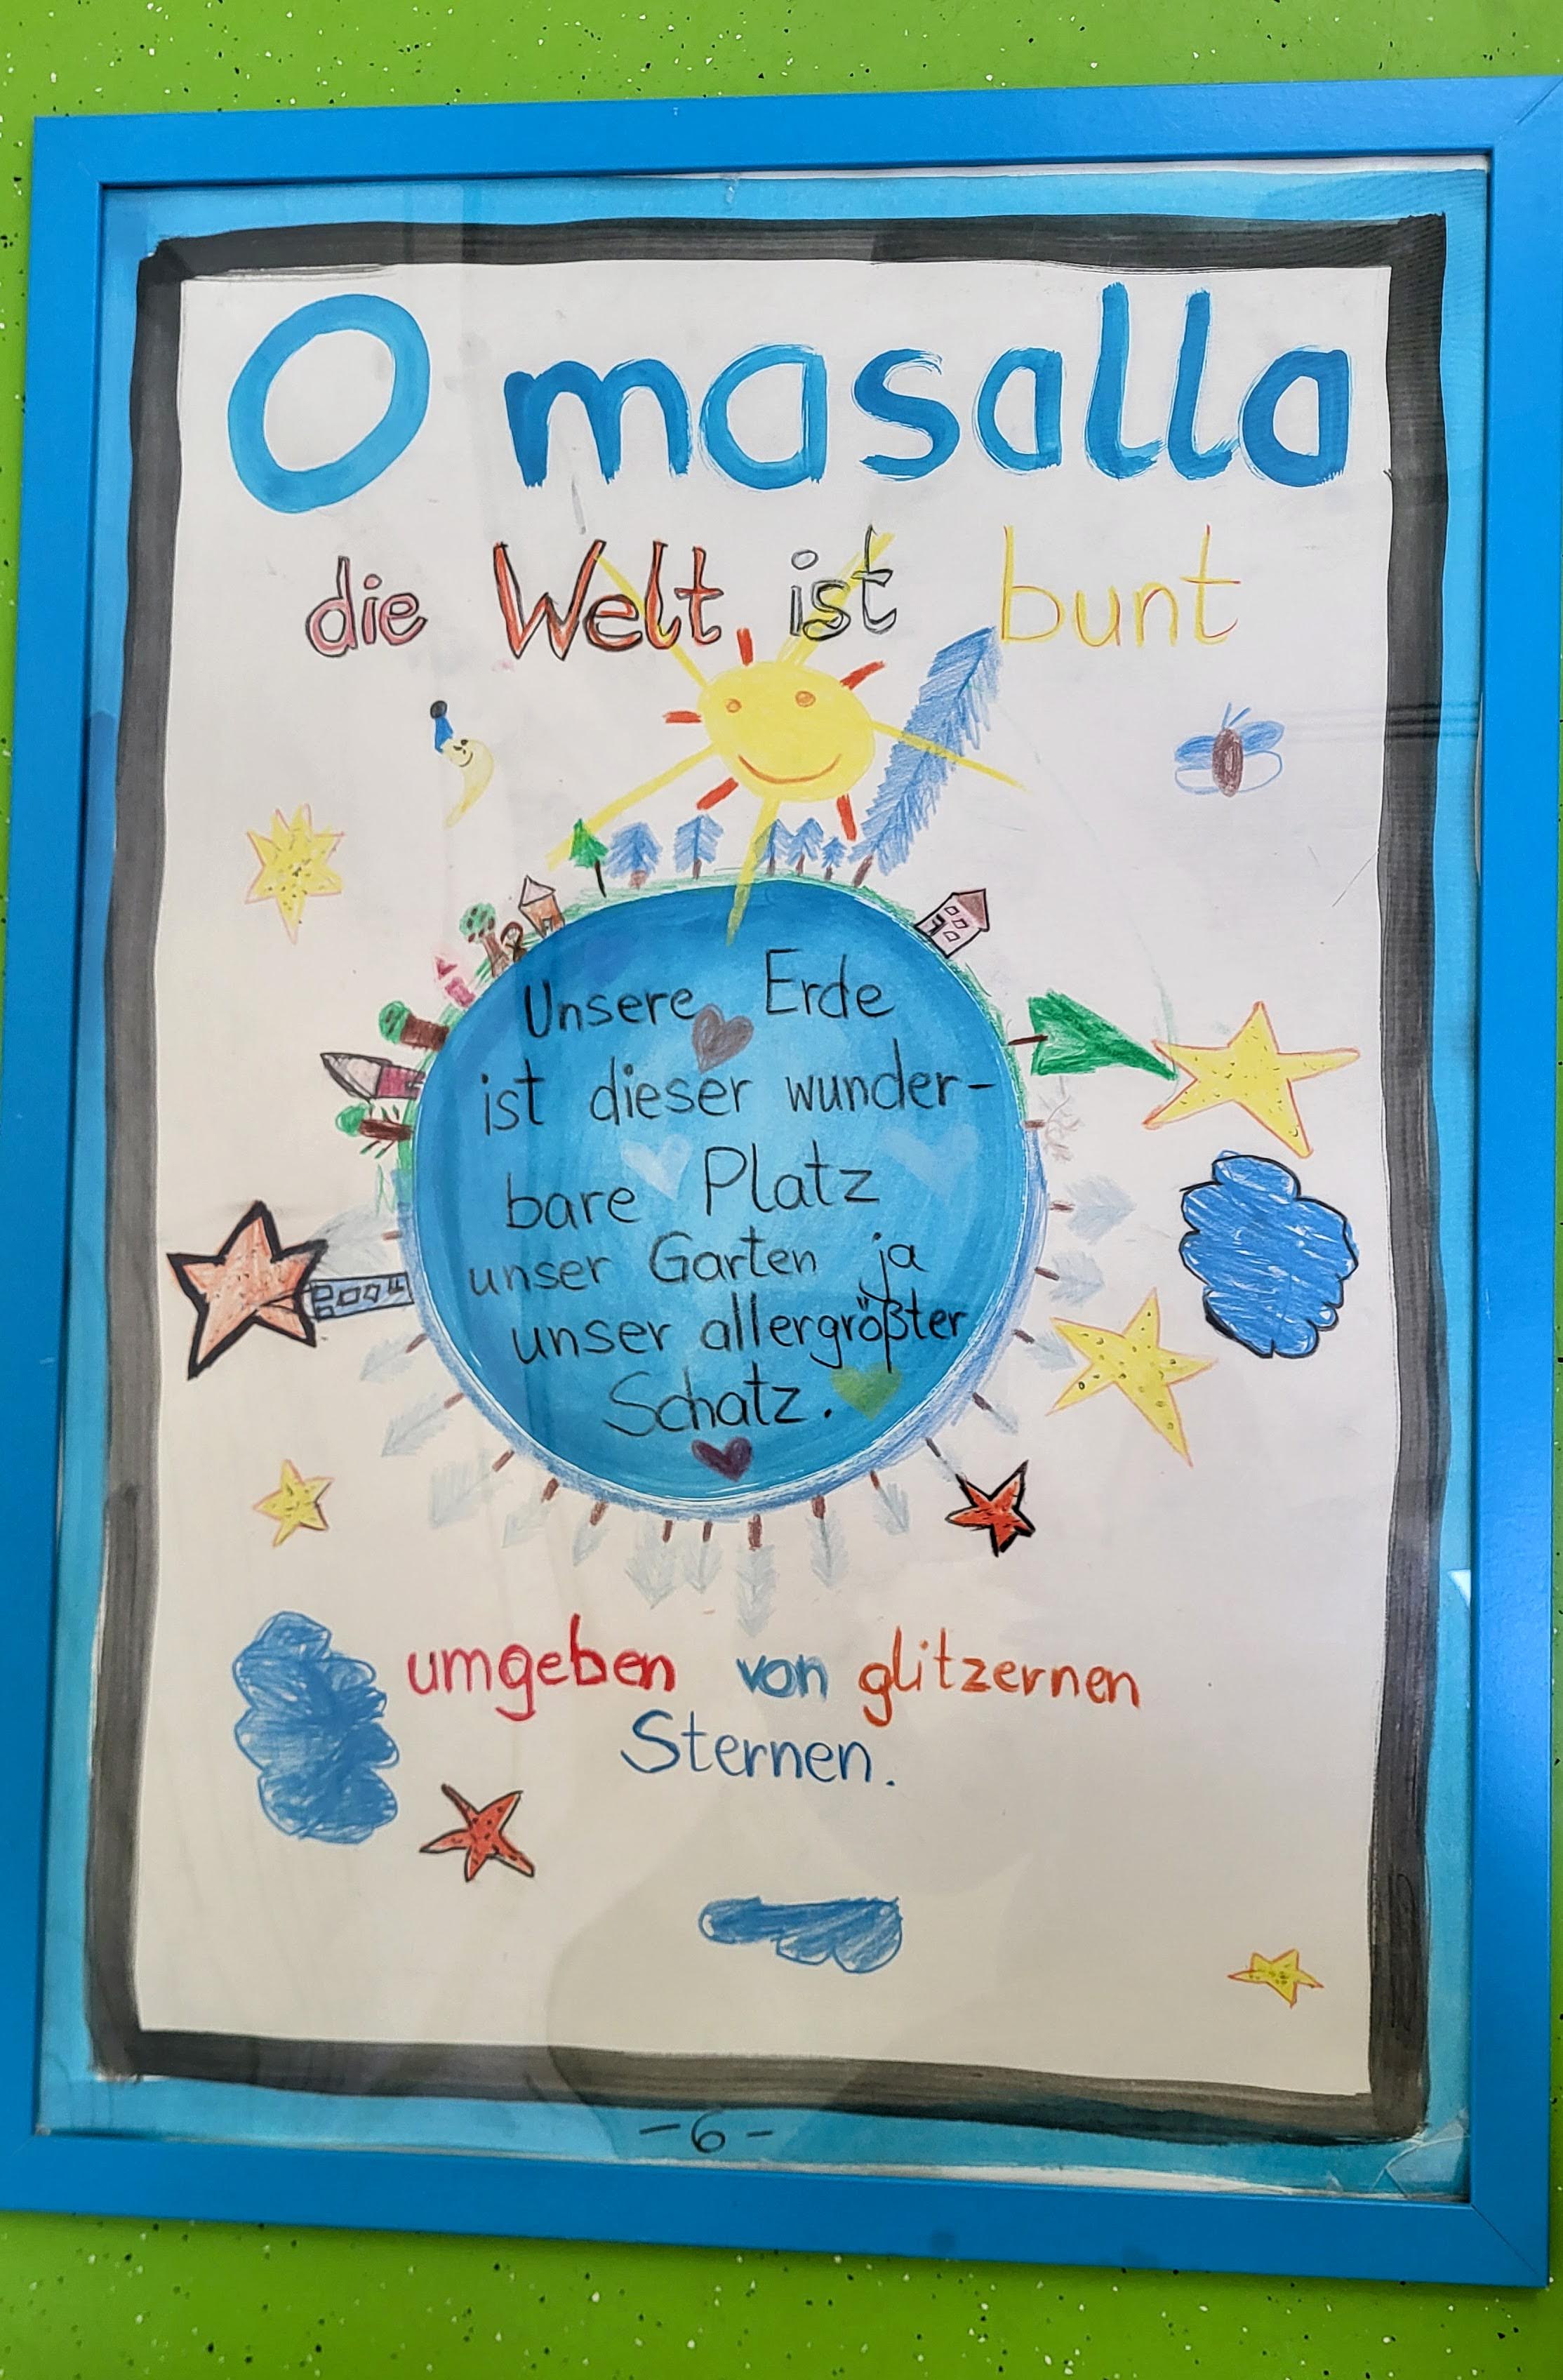 O masalla
die Welt ist bunt
Unsere Erde
ist dieser wunder-
bare Platz
unser Garten ja
unser allergrößter
Schatz.
umgeben von glitzernen
Sternen.
-6-